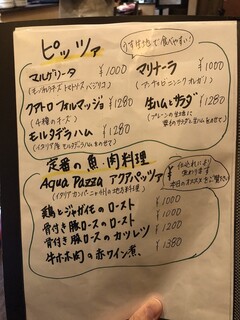 ピッツァ
うす生地で食べやすい!
マルゲリータ ¥1000
(モッツァレラチーズ トマトソース バジリコ)
マリナーラ ¥1000
(アンチョビ ニンニク オレガノ)
クアトロ フォルマッジ ¥1280
(4種のチーズ)
生ハムとサラダ ¥1280
(プレーンの生地に
生ハムをのせて)
モルタデラハム ¥1280
(イタリア産モルタデラハムをのせて)
定番の魚・肉料理
Aqua Pazza アクアパッツァ ¥
(イタリア カンパーニャ州の地方料理)
仕入れにより
変わります
本日のオススメをご覧
鶏とジャガイモのロースト ¥1000
骨付き豚ロースのロースト ¥1000
骨付き豚ロースのカツレツ ¥1200
牛ホホ肉の赤ワイン煮 ¥1380